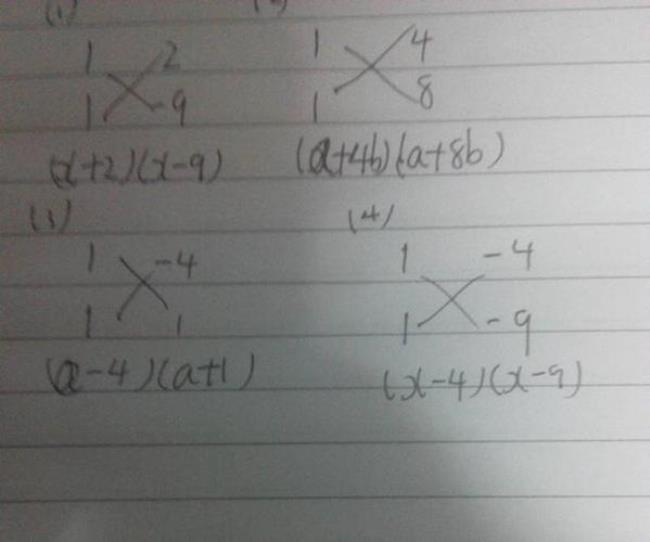 (1)
1 2 1 4
1 -9 1 8
(x+2)(x-9) (a+4b)(a+8b)
(3) (4)
1 -4 1 -4
1 1 1 -9
(a-4)(a+1) (x-4)(x-9)